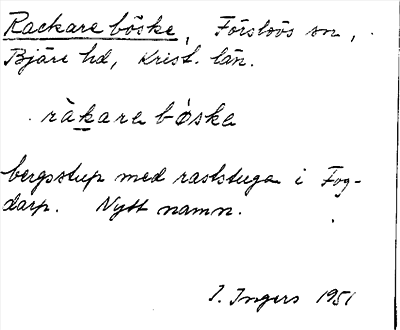 Rackare böske, Förslövs sn,
Bjäre hd, Krist. län.
råkare bøske
bergsstup med raststuga i Fog-
darp. Nytt namn.
I. Ingers 1951